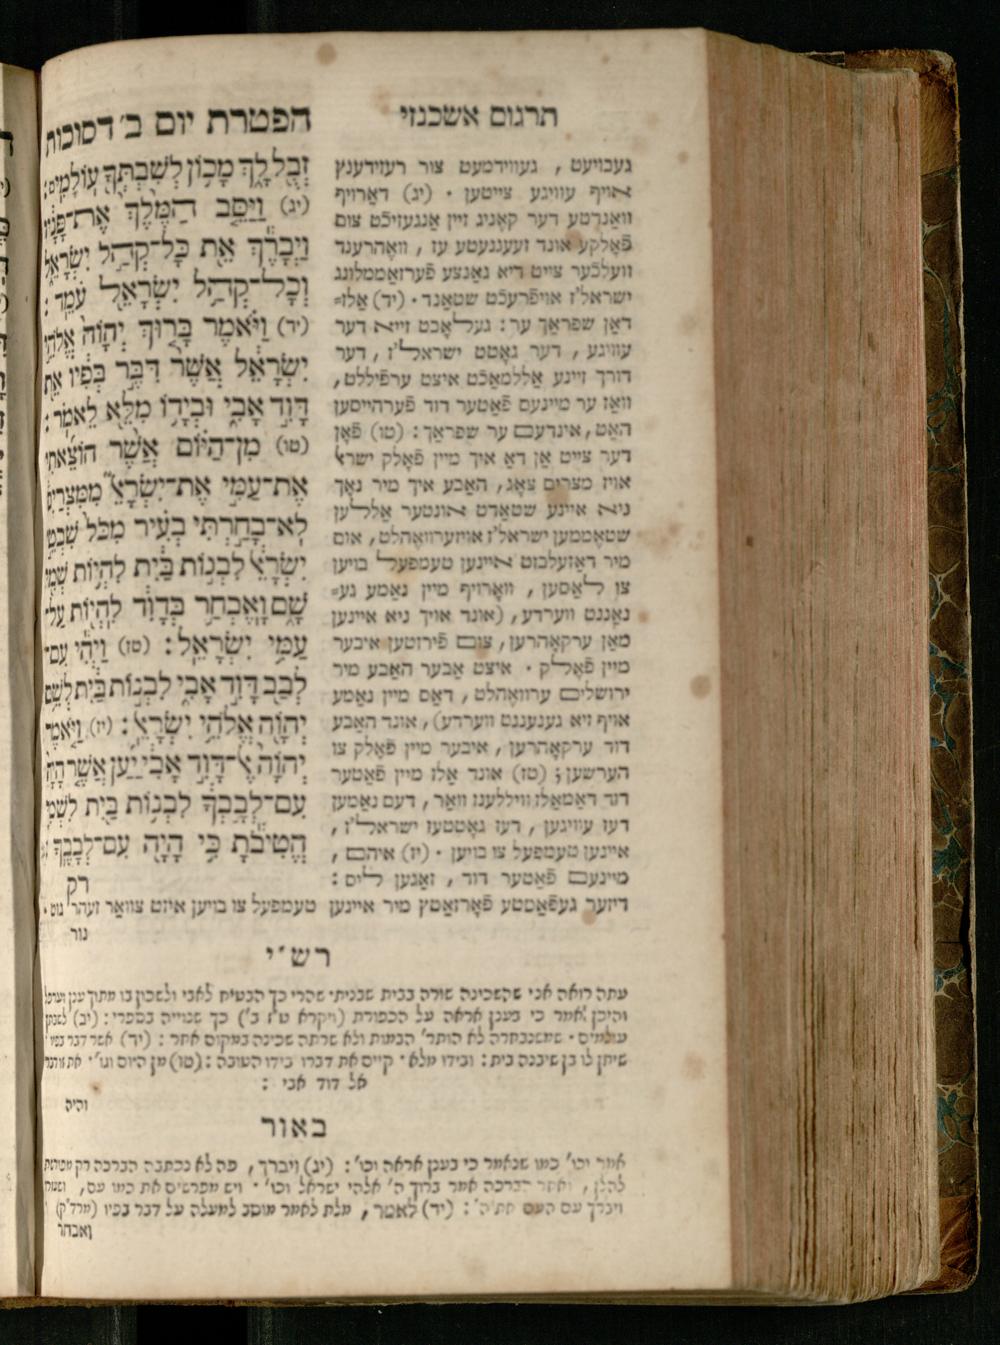 הפטרת יום ב׳ דסוכות
זְבֻל לָךְ מָכוֹן לְשִׁבְתְּךָ עוֹלָמִים׃
(יג) וַיַּסֵּב הַמֶּלֶךְ אֶת־פָּנָיו
וַיְבָרֶךְ אֵת כָּל־קְהַל יִשְׂרָאֵל
וְכָל־קְהַל יִשְׂרָאֵל עֹמֵד׃
(יד) וַיֹּאמֶר בָּרוּךְ יְהוָה אֱלֹהֵי
יִשְׂרָאֵל אֲשֶׁר דִּבֶּר בְּפִיו אֵת
דָּוִד אָבִי וּבְיָדוֹ מִלֵּא לֵאמֹר׃
(טו) מִן־הַיּוֹם אֲשֶׁר הוֹצֵאתִי
אֶת־עַמִּי אֶת־יִשְׂרָאֵ׳ מִמִּצְרַיִם
לֹא־בָחַרְתִּי בְעִיר מִכֹּל שִׁבְטֵי
יִשְׂרָאֵ׳ לִבְנוֹת בַּיִת לִהְיוֹת שְׁמִי
שָׁם וָאֶבְחַר בְּדָוִד לִהְיוֹת עַל־
עַמִּי יִשְׂרָאֵל׃ (טז) וַיְהִי עִם־
לְבַב דָּוִד אָבִי לִבְנוֹת בַּיִת לְשֵׁם
יְהוָה אֱלֹהֵי יִשְׂרָאֵ׳׃ (יז) וַיֹּאמֶר
יְהוָה אֶ׳־דָּוִד אָבִי יַעַן אֲשֶׁר הָיָה
עִם־לְבָבְךָ לִבְנוֹת בַּיִת לִשְׁמִי
הֱטִיבֹתָ כִּי הָיָה עִם־לְבָבֶךָ׃
רק
תרגום אשכנזי
געבויעט, געווידמעט צור רעזידענץ
אויף עוויגע צייטען. (יג) דארויף
וואנדטע דער קאניג זיין אנגעזיכט צום
פאלקע אונד זעגנעטע עז, וואהרענד
וועלכער צייט דיא גאנצע פערזאממלונג
ישראל׳ז אויפרעכט שטאנד. (יד) אלז=
דאן שפראך ער: געלאבט זייא דער
עוויגע, דער גאטט ישראל׳ז, דער
דורך זיינע אללמאכט איצט ערפיללט,
וואז ער מיינעם פאטער דוד פערהייסען
האט, אינדעם ער שפראך: (טו) פאן
דער צייט אן דא איך מיין פאלק ישרא׳
אויז מצרים צאג, האבע איך מיר נאך
ניא איינע שטאדט אונטער אללען
שטאממען ישראל׳ז אויזערוואהלט, אום
מיר דאזעלבזט איינען טעמפעל בויען
צו לאסען, ווארויף מיין נאמע גע=
נאננט ווערדע, (אונד אויך ניא איינען
מאן ערקאהרען, צום פירזטען איבער
מיין פאלק. איצט אבער האבע מיר
ירושלים ערוואהלט, דאס מיין נאמע
אויף זיא גענעננט ווערדע), אונד האבע
דוד ערקאהרען, איבער מיין פאלק צו
הערשען; (טז) אונד אלז מיין פאטער
דוד דאמאלז וויללענז וואר, דעם נאמען
דעז עוויגען, דעז גאטטעז ישראל׳ז,
איינען טעמפעל צו בויען. (יז) איהם,
מיינעם פאטער דוד, זאגען ליס:
דיזער געפאסטע פארזאטץ מיר איינען טעמפעל צו בויען איזט צוואר זעהר גוט.
נור
רש״י
עתה רואה אני שהשכינה שורה בבית שבניתי שהרי כך הבטיח לאבי ולשכון בו מתוך ענן וערפל
והיכן אמר כי בענן אראה על הכפורת (ויקרא ט״ז ב׳) כך שנוייה בספרי: (יב) לשבתך
עולמים. שמשנבחרה לא הותר׳ הבמות ולא שרתה שכינה במקום אחר: (יד) אשר דבר בפיו.
שיתן לו בן שיבנה בית: ובידו מלא. קיים את דברו בידו הטובה: (טו) מן היום וגו׳.
אל דוד אבי:
והיה
באור
אמר וכו׳ כמו שנאמר כי בענן אראה וכו׳: (יג) ויברך, פה לא נכתבה הברכה רק מפורשת
להלן, ואשר הברכה אמר ברוך ה׳ אלהי ישראל וכו׳. ויש מפרשים את כמו עם,
ויברך עם העם את ה׳: (יד) לאמר, מלת לאמר מוסב למעלה על דבר בפיו (מרד״ק)
ואבחר